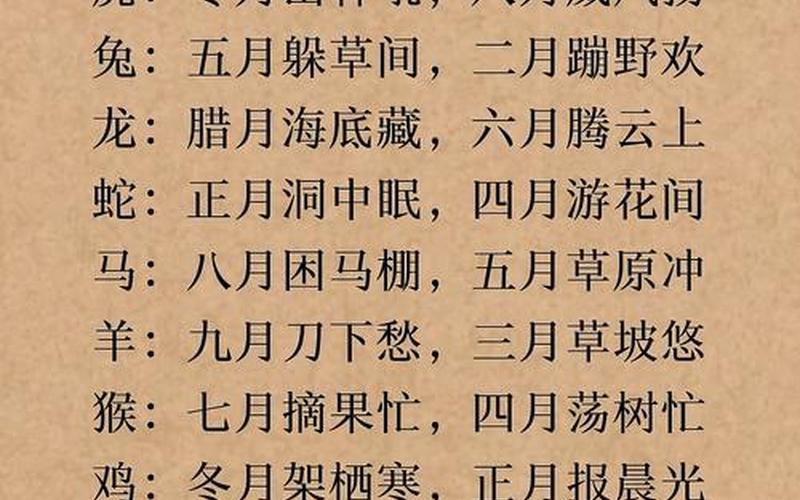 虎：冬月山林吼，八月威风扬
兔：五月躲草间，二月蹦野欢
龙：腊月海底藏，六月腾云上
蛇：正月洞中眠，四月游花间
马：八月困马棚，五月草原冲
羊：九月刀下愁，三月草坡悠
猴：七月摘果忙，四月荡树忙
鸡：冬月架栖寒，正月报晨光